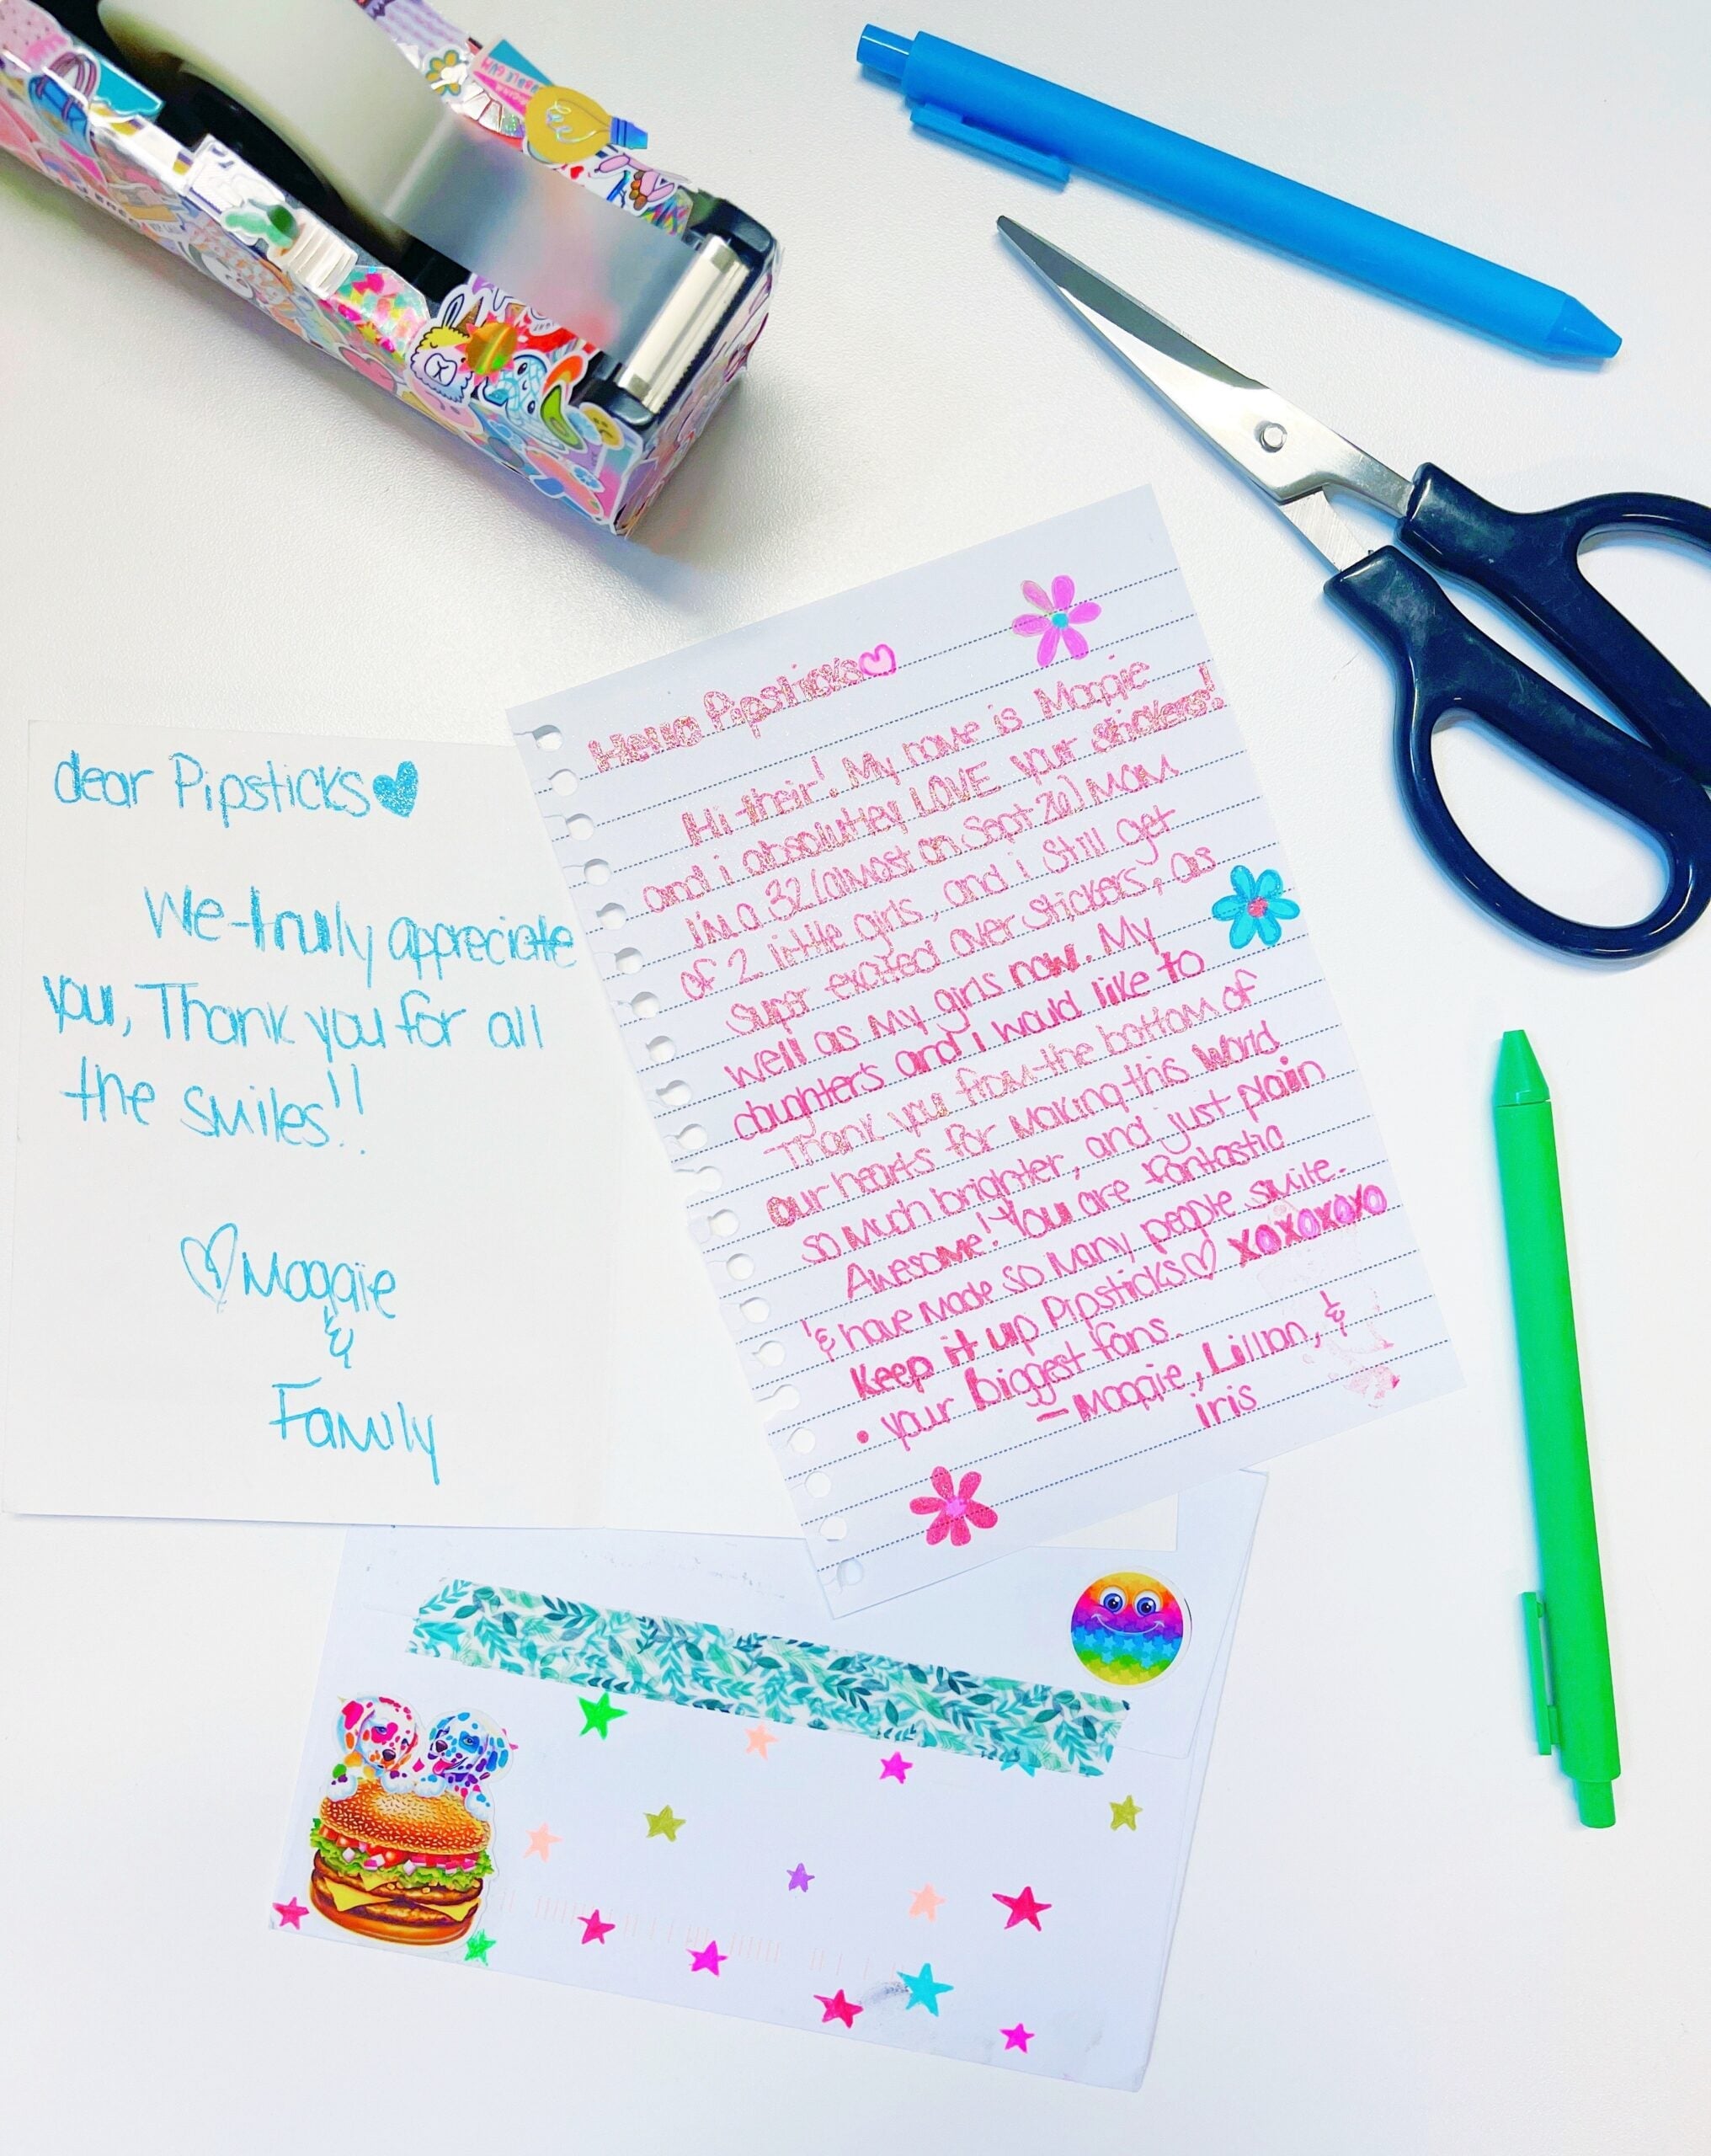 dear Pipsticks
We truly appreciate
you, Thank you for all
the smiles!!
Maggie
&
Family
Hello Pipsticks
Hi their! My name is Maggie
and i absolutley LOVE your stickers!
I'm a 32 (almost on Sept 26) MOM
of 2 little girls, and i still get
super excited over stickers, as
well as my girls now. My
daughters and i would like to
Thank you from the bottom of
our hearts for making this world
so much brighter, and just plain
Awesome! You are fantastic
& have made so many people smile.
Keep it up Pipsticks xoxoxoxo
• your Biggest fans.
- Maggie, Lillian, &
iris